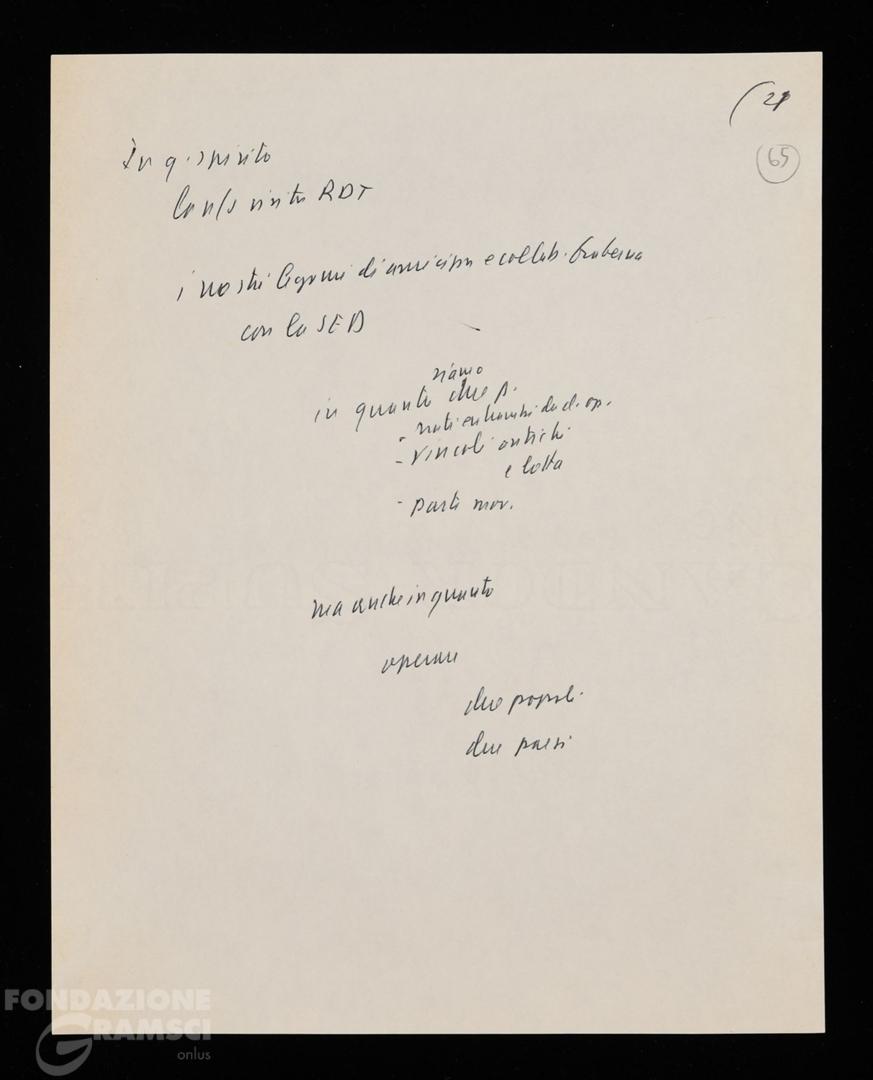 (21
65
In q. spirito
la n/s visita RDT
i nostri legami di amicizia e collab. fraterna
con la SED
siamo
in quanto due p.
- nati entrambi da cl. op.
- vincoli antichi
e lotta
- parti mov.
ma anche in quanto
operare
due popoli
due paesi
FONDAZIONE
GRAMSCI
onlus